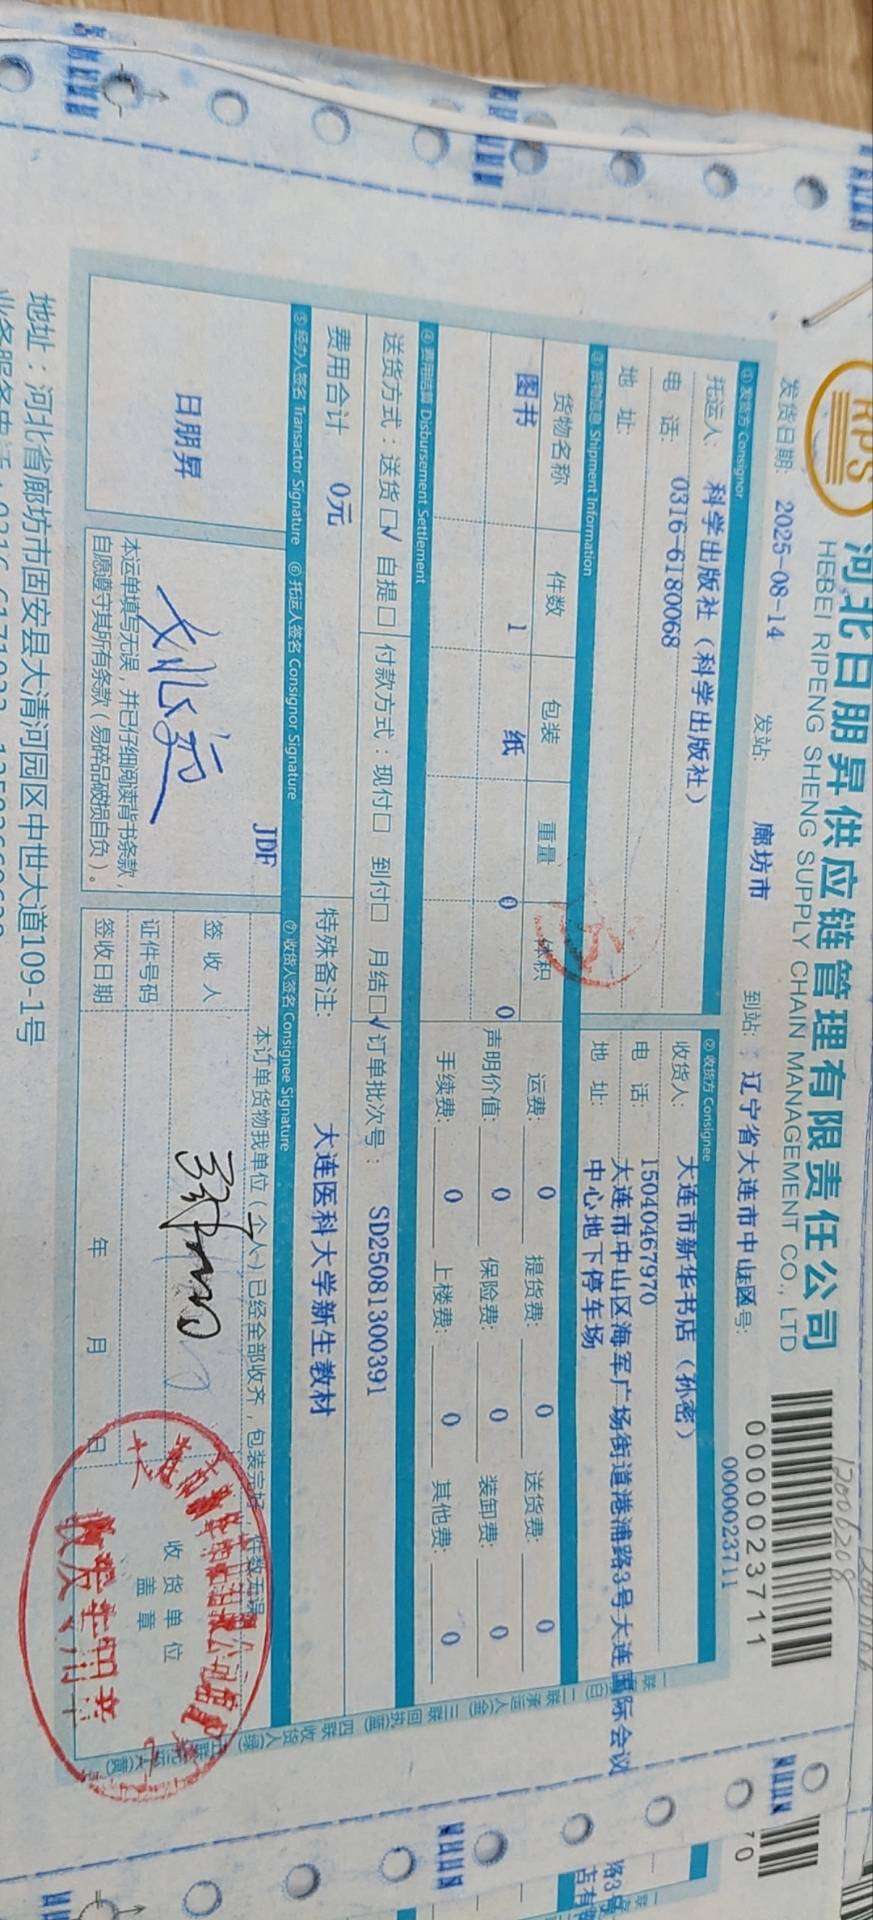 RPS
河北日朋昇供应链管理有限责任公司
HEBEI RIPENG SHENG SUPPLY CHAIN MANAGEMENT CO., LTD
12006208
0000023711
0000023711
发货日期: 2025-08-14 发站: 廊坊市 到站: 辽宁省大连市中山区 号:
① 发货方 Consignor
托运人: 科学出版社（科学出版社）
电 话: 0316-6180068
地 址:
② 收货方 Consignee
收货人: 大连市新华书店（孙密）
电 话: 15040467970
地 址: 大连市中山区海军广场街道港浦路3号大连国际会议
中心地下停车场
③ 货物信息 Shipment Information
货物名称 件数 包装 重量 体积
图书 1 纸 0 0
运费: 0 提货费: 0 送货费: 0
声明价值: 0 保险费: 0 装卸费: 0
手续费: 0 上楼费: 0 其他费: 0
④ 费用结算 Disbursement Settlement
送货方式：送货☑ 自提□ 付款方式：现付□ 到付□ 月结☑ 订单批次号： SD25081300391
费用合计 0元 特殊备注: 大连医科大学新生教材
⑤ 经办人签名 Transactor Signature ⑥ 托运人签名 Consignor Signature ⑦ 收货人签名 Consignee Signature
日朋昇
JDF
本运单填写无误，并已仔细阅读背书条款，
自愿遵守其所有条款（易碎品破损自负）。
本订单货物我单位（个人）已经全部收齐，包装完好，件数无误
签 收 人
证件号码
签收日期 年 月 日
收货单位
盖 章
地址：河北省廊坊市固安县大清河园区中世大道109-1号